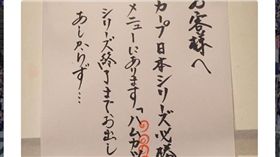 お客様へ
カープ日本シリーズ必勝
メニューにあります「ハムカツ
シリーズ終了までお出し
あしからず…